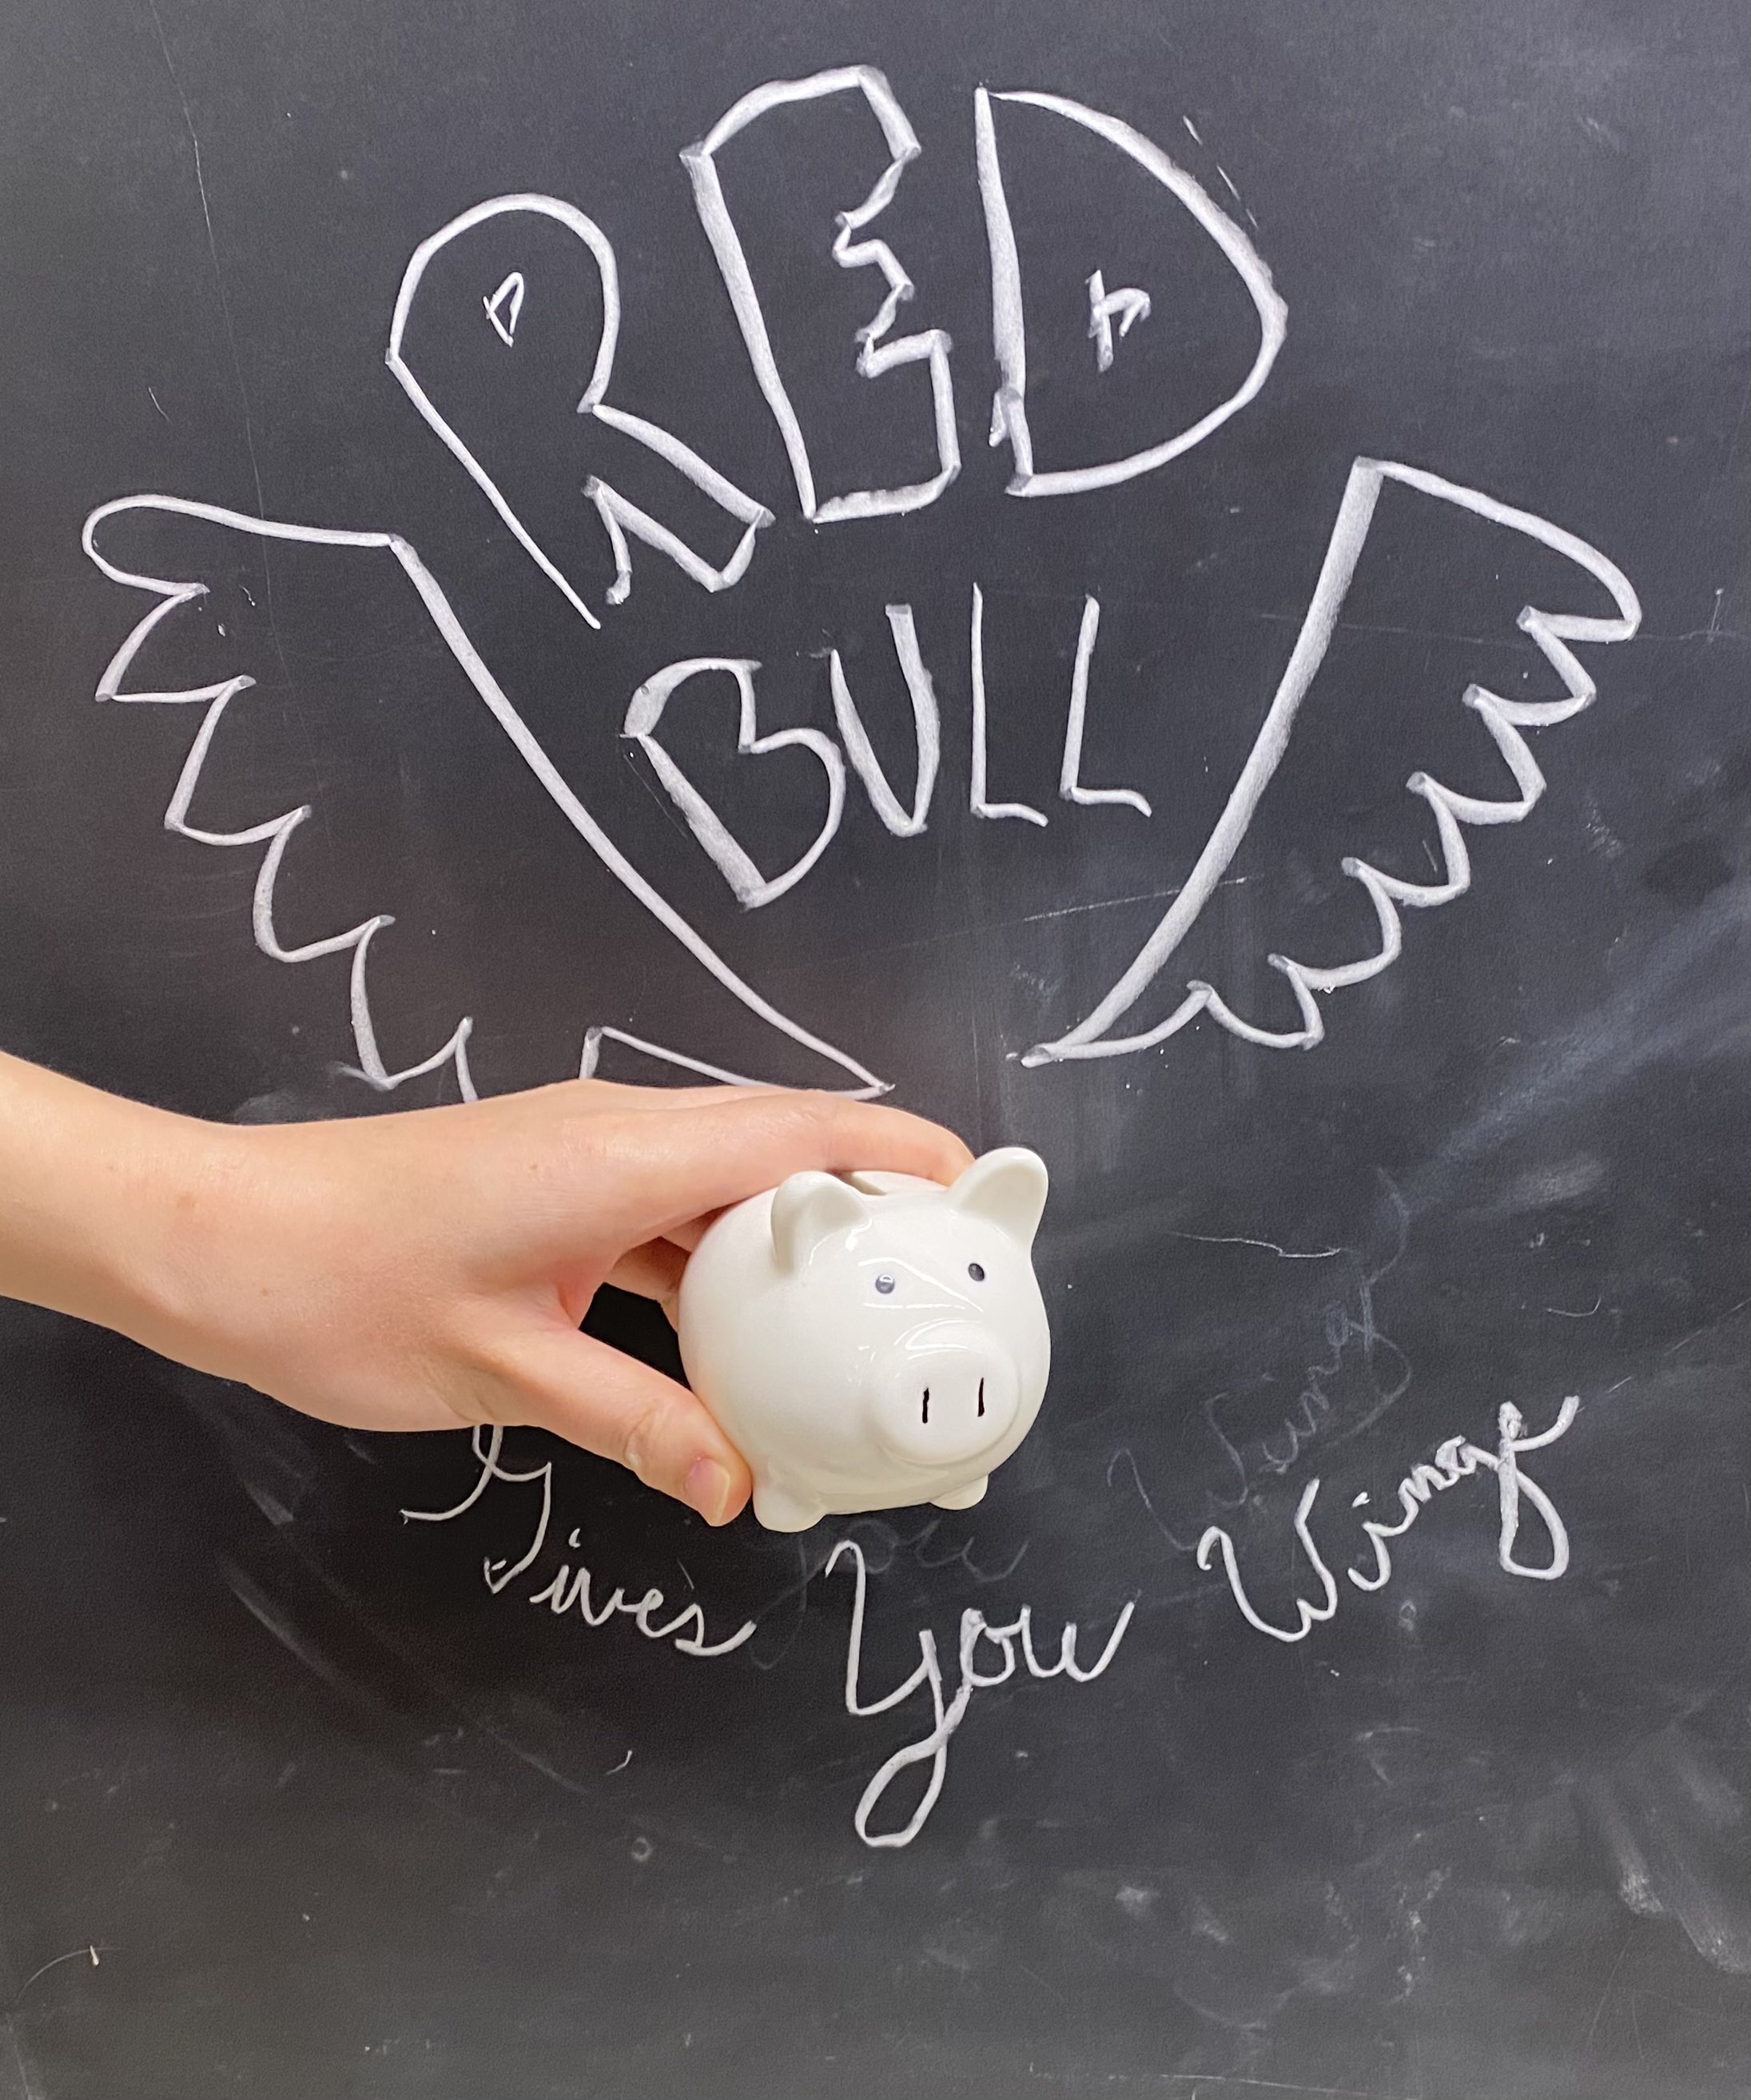 RED
BULL
Gives You Wings